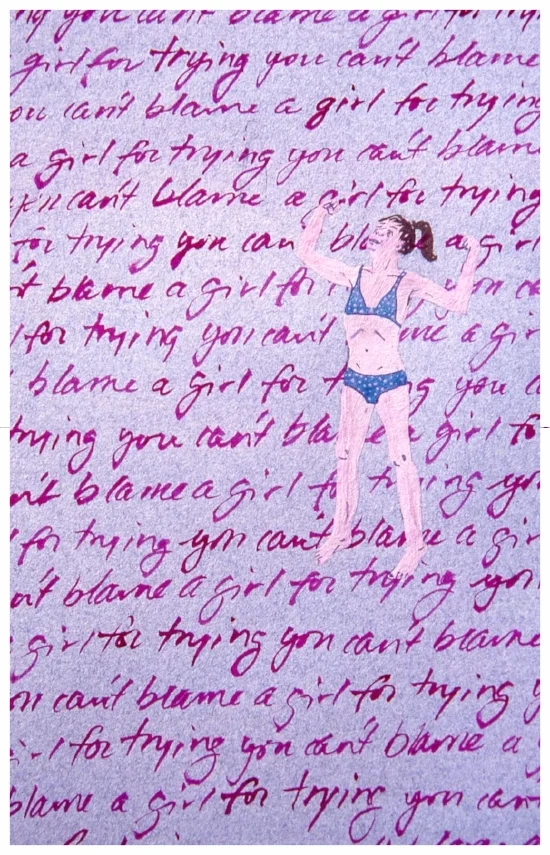 you can't blame a girl for try
girl for trying you can't blame
ou can't blame a girl for trying
a girl for trying you can't blame
you can't blame a girl for trying
for trying you can bla a girl
't blame a girl for you ca
l for trying you can't me a gir
blame a girl for t ng you c
trying you can't bla e a girl fo
n't blame a girl fo trying you
l for trying you can't blame a gir
n't blame a girl for trying you
girl for trying you can't blame
ou can't blame a girl for trying y
irl for trying you can't blame a
blame a girl for trying you can